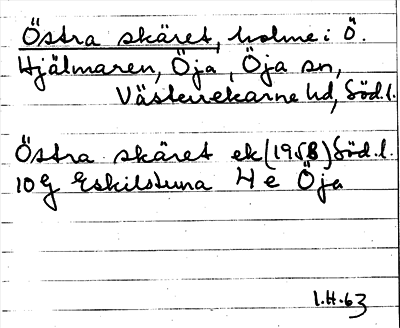 Östra skäret, holme i Ö.
Hjälmaren, Öja, Öja sn,
Västerrekarne hd, Söd.l.
Östra skäret ek (1958) Söd.l.
10 G Eskilstuna 4 e Öja
1.H.63